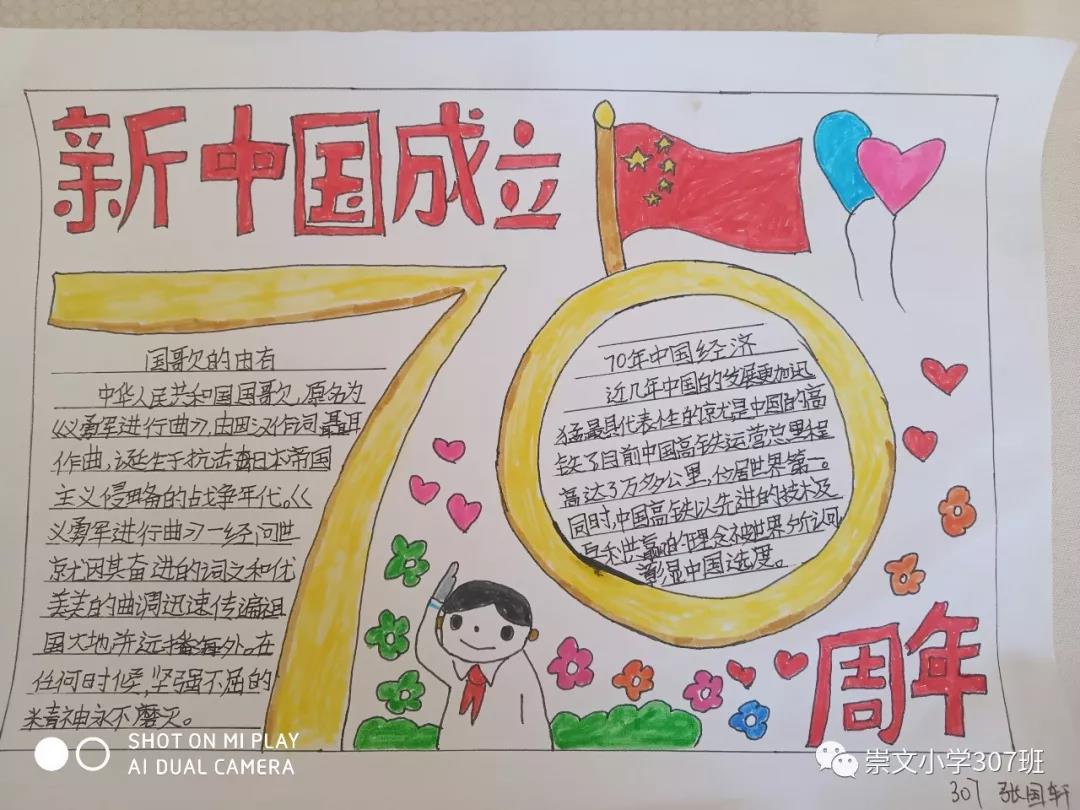 新中国成立
70
周年
国歌欠的由有
中华人民共和国国歌欠,原名为
《义勇军进行曲》,由田汉作词聂耳
作曲,诞生于抗击日本帝国
主义侵略备的占战争年代。《
义勇军进行曲》一经问世
京尤因其奋进的词义和优
美的曲调迅速传遍祖
国大地并远播海外。在
任何时候,坚强不屈的
精神永不磨灭。
70年中国经济
近几年中国的发展更加迅
猛最具代表性的就是中国的高
铁了目前中国高铁运营总里程
高达3万多公里,位居世界第一。
同时,中国高铁以先进的技术及
互利共赢的理念被世界所认可
彰显中国速度。
SHOT ON MI PLAY
AI DUAL CAMERA
崇文小学307班
307 张国轩